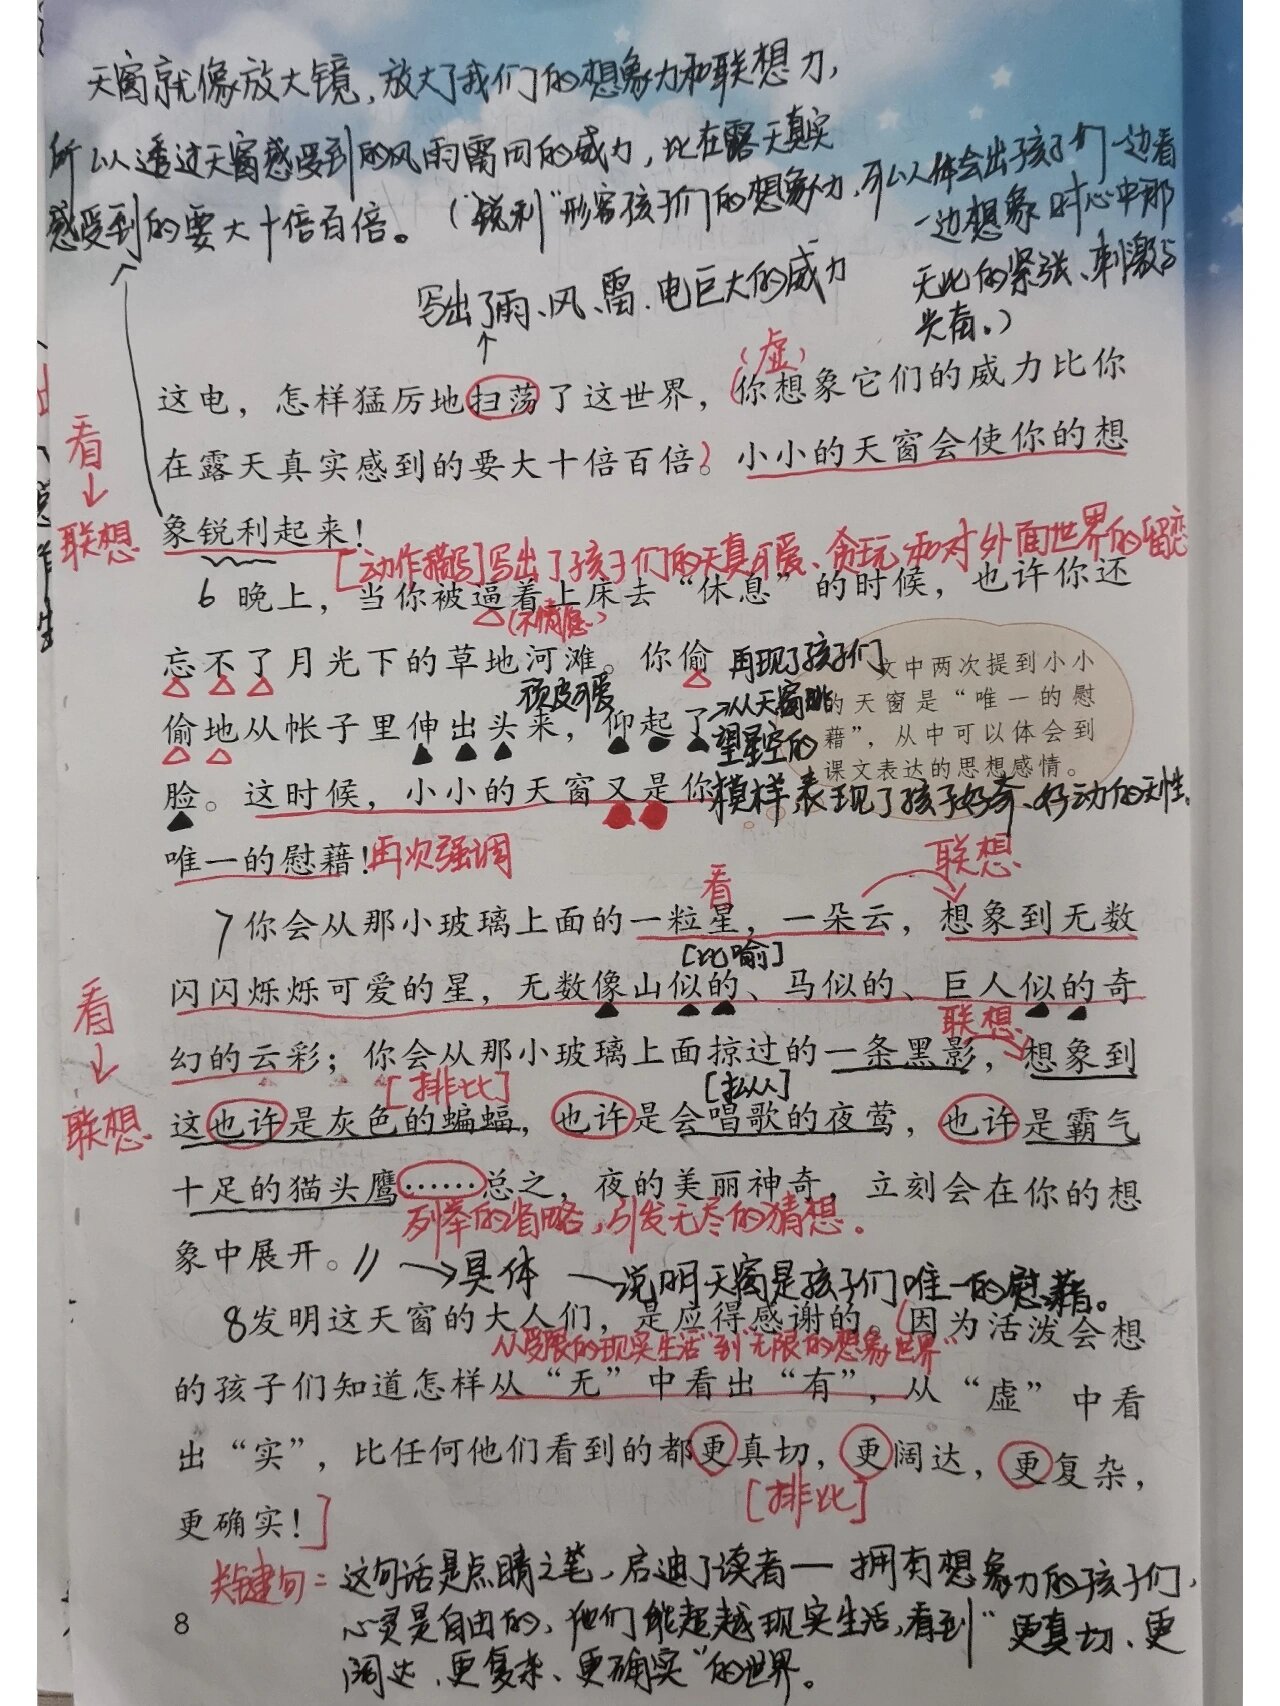 天窗就像放大镜，放大了我们的想象力和联想力，
所以透过天窗感受到的风雨雷电的威力，比在露天真实
感受到的要大十倍百倍。
（"锐利"形容孩子们的想象力，可以体会出孩子们一边看
一边想象时心中那
无比的紧张、刺激与
兴奋。）
写出了雨、风、雷、电巨大的威力
（虚）
这电，怎样猛厉地扫荡了这世界，你想象它们的威力比你
看
在露天真实感到的要大十倍百倍。小小的天窗会使你的想
联想
象锐利起来！
[动作描写]写出了孩子们的天真可爱、贪玩和对外面世界的留恋
6 晚上，当你被逼着上床去“休息”的时候，也许你还
（不情愿）
忘不了月光下的草地河滩。你偷
顽皮可爱
偷地从帐子里伸出头来，仰起了
再现了孩子们
从天窗眺
望星空的
模样 表现了孩子好奇、好动的天性。
文中两次提到小小
的天窗是“唯一的慰
藉”，从中可以体会到
课文表达的思想感情。
脸。这时候，小小的天窗又是你
唯一的慰藉！再次强调
看
联想
7 你会从那小玻璃上面的一粒星，一朵云，想象到无数
[比喻]
闪闪烁烁可爱的星，无数像山似的、马似的、巨人似的奇
看
联想
联想
幻的云彩；你会从那小玻璃上面掠过的一条黑影，想象到
[排比]
[拟人]
这也许是灰色的蝙蝠，也许是会唱歌的夜莺，也许是霸气
十足的猫头鹰……总之，夜的美丽神奇，立刻会在你的想
列举的省略，引发无尽的猜想。
象中展开。//→具体 — 说明天窗是孩子们唯一的慰藉。
8 发明这天窗的大人们，是应得感谢的。[因为活泼会想
从"受限的现实生活"到"无限的想象世界"
的孩子们知道怎样从“无”中看出“有”，从“虚”中看
出“实”，比任何他们看到的都更真切，更阔达，更复杂，
[排比]
更确实！]
关键句：这句话是点睛之笔，启迪了读者—拥有想象力的孩子们，
心灵是自由的，他们能超越现实生活，看到"更真切、更
阔达、更复杂、更确实"的世界。
8